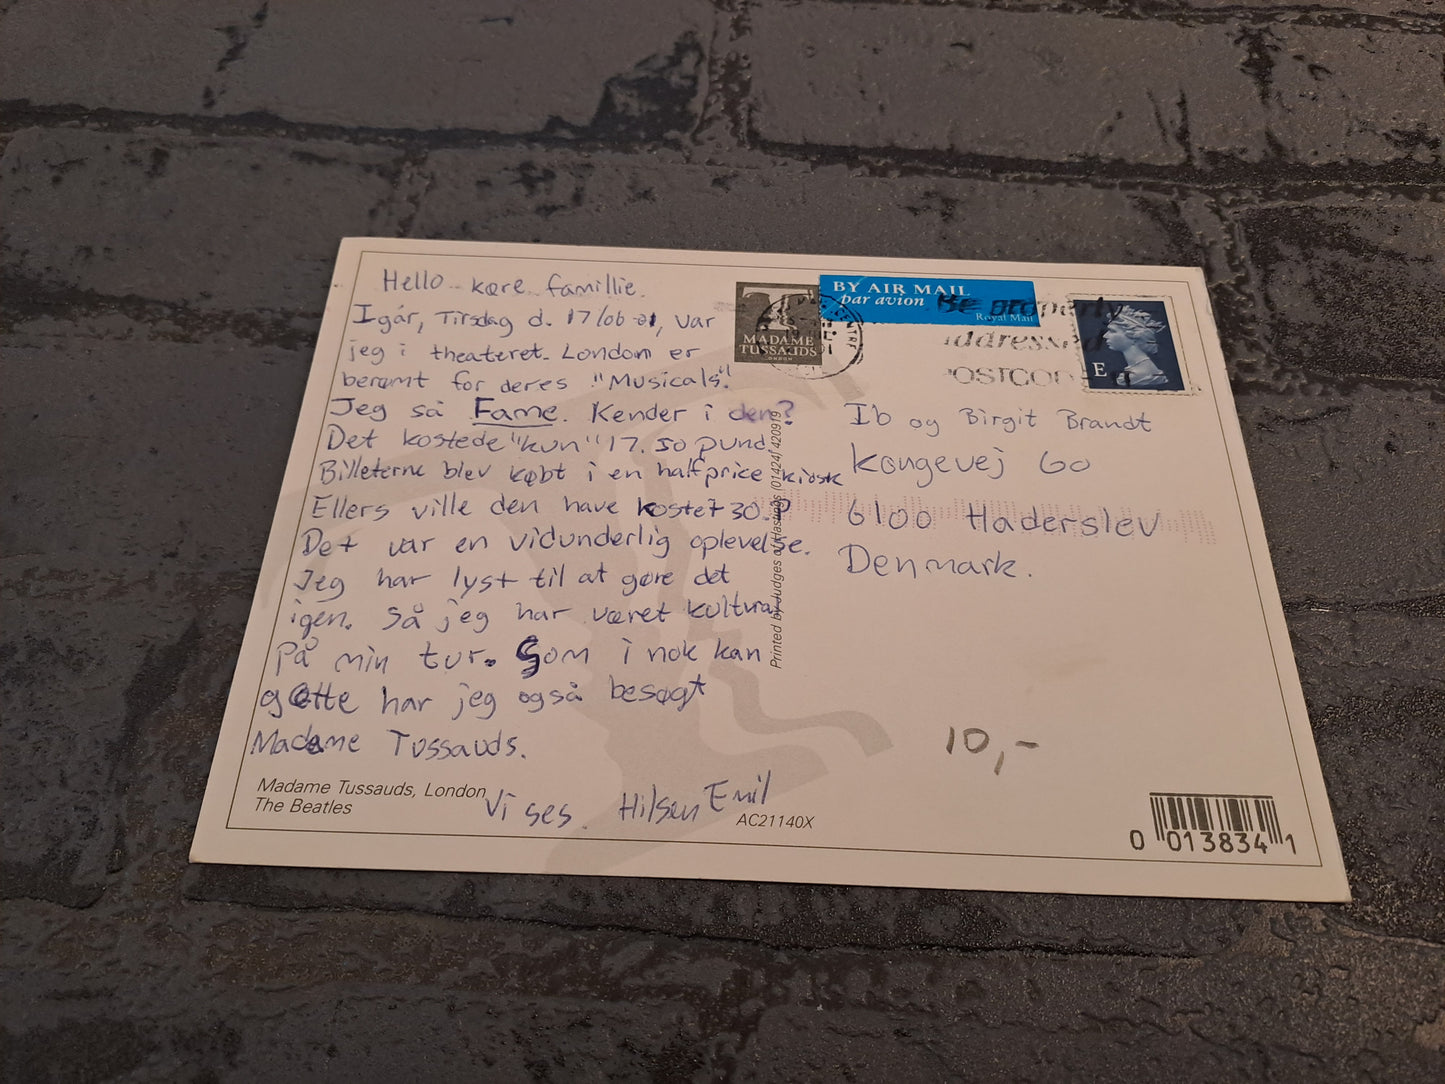 Hello kære famillie.
Igår, Tirsdag d. 17/06-01, var
jeg i theateret. London er
berømt for deres "Musicals".
Jeg så Fame. Kender i den?
Det kostede "kun" 17.50 pund.
Billeterne blev købt i en halfprice kiosk
Ellers ville den have kostet 30.P
Det var en vidunderlig oplevelse.
Jeg har lyst til at gøre det
igen. Så jeg har været kultural
På min tur. Som i nok kan
gætte har jeg også besøgt
Madame Tussauds.
Vi ses. Hilsen Emil
Madame Tussauds, London
The Beatles
AC21140X
Printed by Judges of Hastings (01424) 420919
MADAME
TUSSAUDS
LONDON
BY AIR MAIL
par avion
Royal Mail
Be properly
addressed
POSTCODE it
E
Ib og Birgit Brandt
Kongevej 60
6100 Haderslev
Denmark.
10,-
0 013834 1